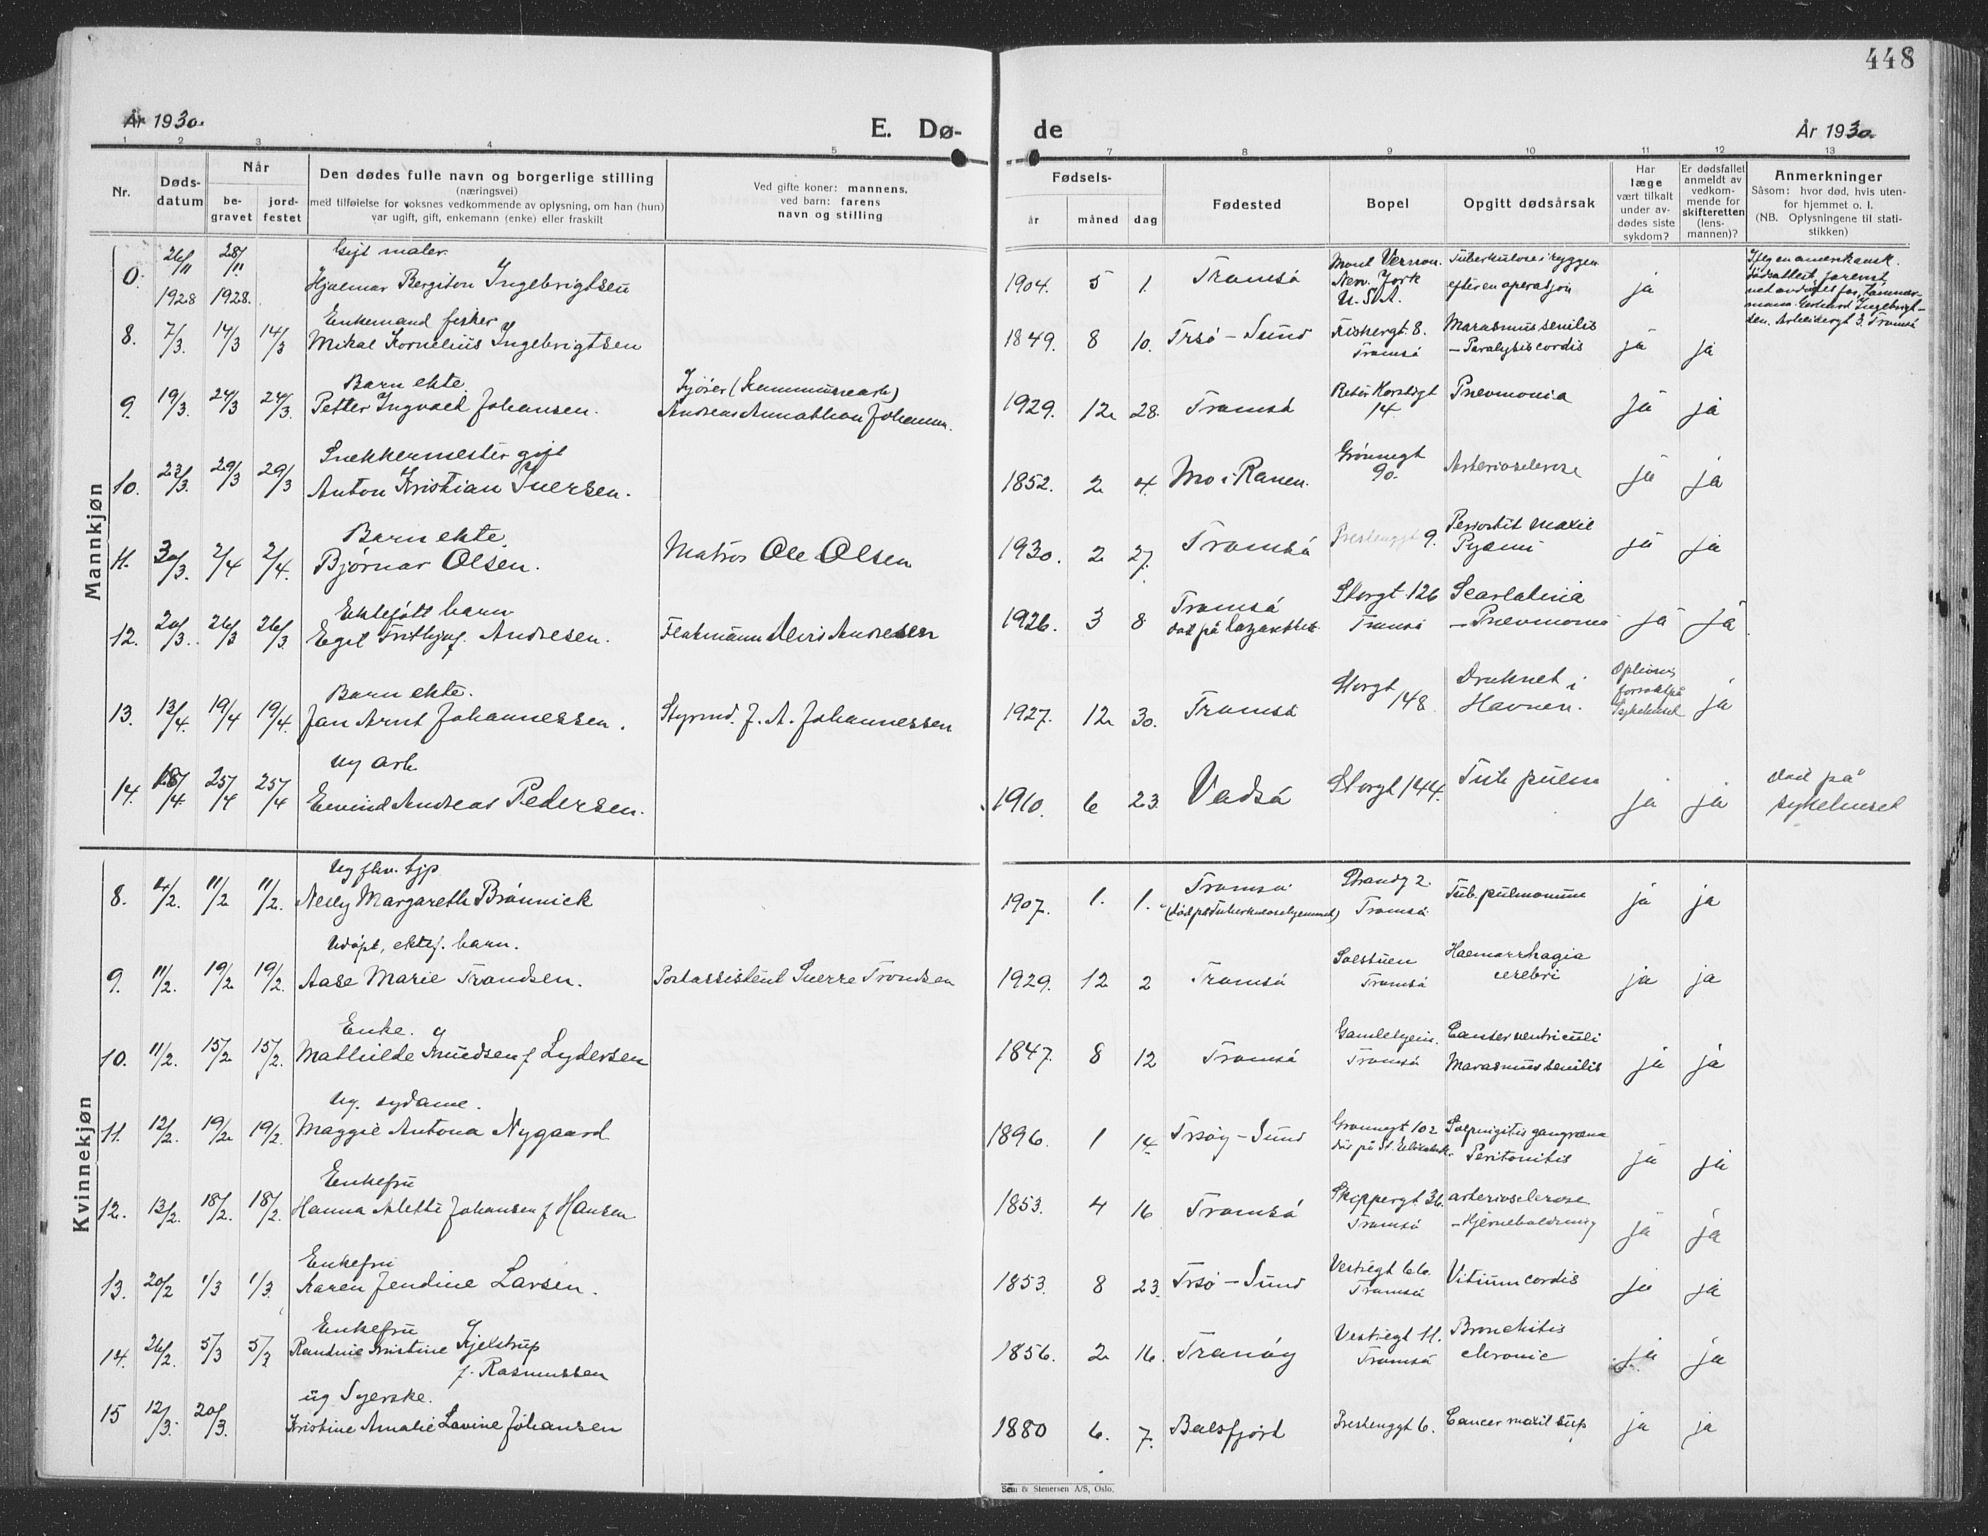 448
År 1930.
E. Dø-
de
År 1930.
1 2 3 4 5
7 8 9 10 11 12 13
Nr.
Døds-
datum
Når
be-
gravet
jord-
festet
Den dødes fulle navn og borgerlige stilling
(næringsvei)
med tilføielse for voksnes vedkommende av oplysning, om han (hun)
var ugift, gift, enkemann (enke) eller fraskilt
Ved gifte koner: mannens,
ved barn: farens
navn og stilling
Fødsels-
år måned dag
Fødested
Bopel
Opgitt dødsårsak
Har
læge
vært tilkalt
under av-
dødes siste
sykdom?
Er dødsfallet
anmeldt av
vedkom-
mende for
skifteretten
(lens-
mannen)?
Anmerkninger
Såsom: hvor død, hvis uten-
for hjemmet o. l.
(NB. Oplysningene til stati-
stikken)
Mannkjøn
Gift maler
0. 26/11 1928 28/11 1928. Hjalmar Bergiton Ingebrigtsen
1904. 5 1. Tromsø Mont Vernon. New. York U.S.A. Tuberkulose i ryggen efter en operasjon ja
Enkemand fisker
8. 7/3. 14/3 14/3 Mikal Kornelius Ingebrigtsen
1849. 8 10. Trsø - Sund 8. Tromsø Marasmus senilis - Paralysis cordis ja ja
Barn ekte
9. 19/3. 24/3 24/3. Petter Ingvald Johansen. Andreas Johansen.
1929. 12 28. Tromsø 14. Pnevmonia ja ja
Snekkermester gift
10. 23/3. 29/3 29/3 Anton Kristian Iversen.
1852. 2 4. Mo i Ranen. Grønnegt 90. Arterioselerose ja ja
Barn ekte.
11. 30/3. 2/4 2/4. Bjørnar Olsen. Matros Ole Olsen
1930. 2 27. Tromsø Prestenggt 9. Periostit maxil Pyæmi ja ja
Ektefødt barn
12. 20/3. 26/3 26/3 Egil Frithjof Andresen. Andresen
1926. 3 8 Tromsø død på Lazarettet. Storgt 126 Tromsø Scarlatina - Pnevmoni ja ja
Barn ekte.
13. 13/4. 19/4 19/4. Jan Arnt Johannessen. Styrmd. J. A. Johannessen
1927. 12 30. Tromsø Storgt 148 Druknet i Havnen. Oplivnings forsøkt på Sykehuset ja
Ug arb
14. 18/4 25/4 25/4 Eivind Andreas Pedersen.
1910. 6 23. Vadsø Storgt 144. Tub pulm ja ja død på sykehuset
Kvinnekjøn
Ug fhv. tjp
8. 4/2. 11/2 11/2. Nelly Margareth Brønnick
1907. 1. 1. Tromsø (død på Tuberkulosehjemmet) Strandg 2. Tromsø Tub. pulmonum ja ja
Udøpt, ektef. barn.
9. 11/2. 19/2 19/2. Aase Marie Trondsen. Postassistent Sverre Trondsen
1929. 12 2 Tromsø Solstuen Tromsø Haemorrhagia cerebri ja ja
Enke.
10. 11/2. 15/2 15/2. Mathilde Knudsen f Lydersen
1847. 8 12 Tromsø Gamlehjem. Tromsø Cancer ventriculi Marasmus senilis ja ja
Ug. sydame.
11. 12/2. 19/2 19/2. Maggie Antona Nygaard
1896. 1 14 Trsøy - Sund Grønnegt 102 død på St. Elisabeth. Salpingitis gangræna Peritonitis ja ja
Enkefru
12. 13/2. 18/2. 18/2. Hanna Alette Johansen f Hansen
1853. 4 16 Tromsø Skippergt 36. Tromsø arterioselerose - Hjerneblødning ja ja
Enkefru
13. 20/2 1/3 1/3. Karen Jendine Larsen.
1853. 8 23. Trsø - Sund Vestregt 66. Tromsø Vitium cordis ja ja
Enkefru
14. 26/2. 5/3 5/3 Randine Kristine Kjelstrup f. Rasmussen
1856. 2 16. Tranøy Vestregt 11. Tromsø Bronchitis chronic ja ja
ug Syerske.
15 12/3. 20/3. Kristine Amalie Lovine Johansen
1880 6. 7. Balsfjord Prestenggt 6. Cancer maxil sup ja ja
Sem & Stenersen A/S, Oslo.